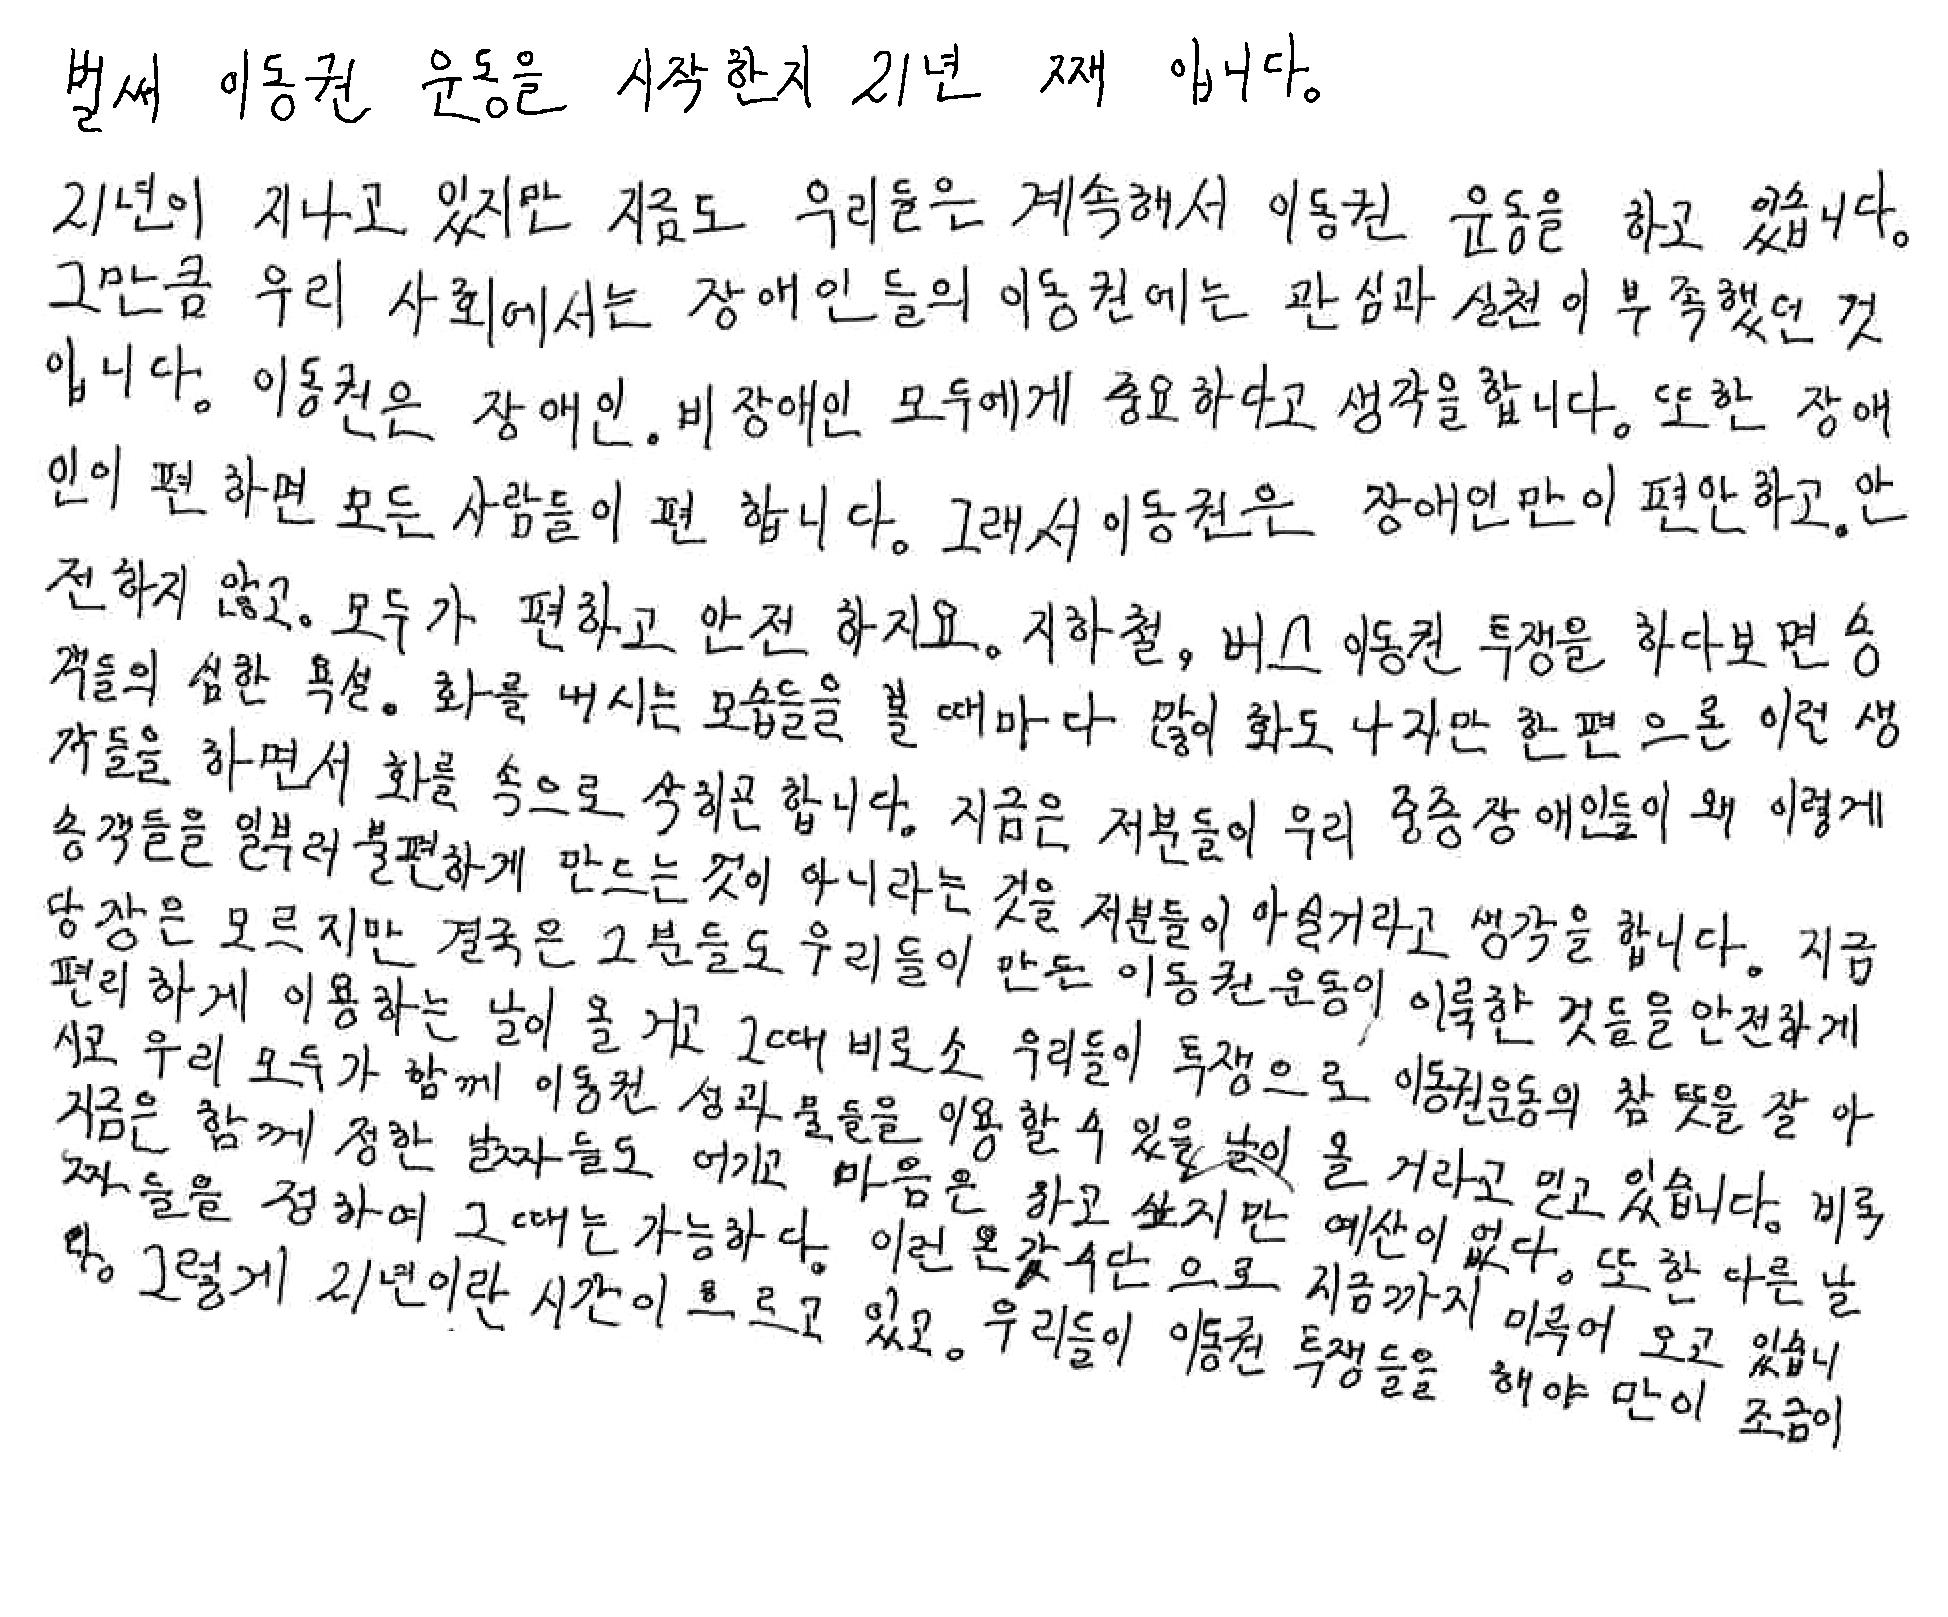 벌써 이동권 운동을 시작한지 21년 째 입니다.
21년이 지나고 있지만 지금도 우리들은 계속해서 이동권 운동을 하고 있습니다.
그만큼 우리 사회에서는 장애인들의 이동권에는 관심과 실천이 부족했던 것
입니다. 이동권은 장애인. 비장애인 모두에게 중요하다고 생각을 합니다. 또한 장애
인이 편 하면 모든 사람들이 편 합니다. 그래서 이동권은 장애인만이 편안하고. 안
전하지 않고. 모두가 편하고 안전 하지요. 지하철, 버스 이동권 투쟁을 하다보면 승
객들의 심한 욕설. 화를 내시는 모습들을 볼 때마다 많이 화도 나지만 한편으론 이런 생
각들을 하면서 화를 속으로 삭히곤 합니다. 지금은 저분들이 우리 중증장애인들이 왜 이렇게
승객들을 일부러 불편하게 만드는 것이 아니라는 것을 저분들이 아실거라고 생각을 합니다. 지금
당장은 모르지만 결국은 그분들도 우리들이 만든 이동권운동이 이룩한 것들을 안전하게
편리하게 이용하는 날이 올 거고 그때 비로소 우리들이 투쟁으로 이동권운동의 참 뜻을 잘 아
시고 우리 모두가 함께 이동권 성과물들을 이용할 수 있을 날이 올 거라고 믿고 있습니다. 비록
지금은 함께 정한 날짜들도 어기고 마음은 하고 싶지만 예산이 없다. 또한 다른 날
짜들을 정하여 그때는 가능하다. 이런 온갖 수단으로 지금까지 미루어 오고 있습니
다. 그렇게 21년이란 시간이 흐르고 있고. 우리들이 이동권 투쟁들을 해야만이 조금이